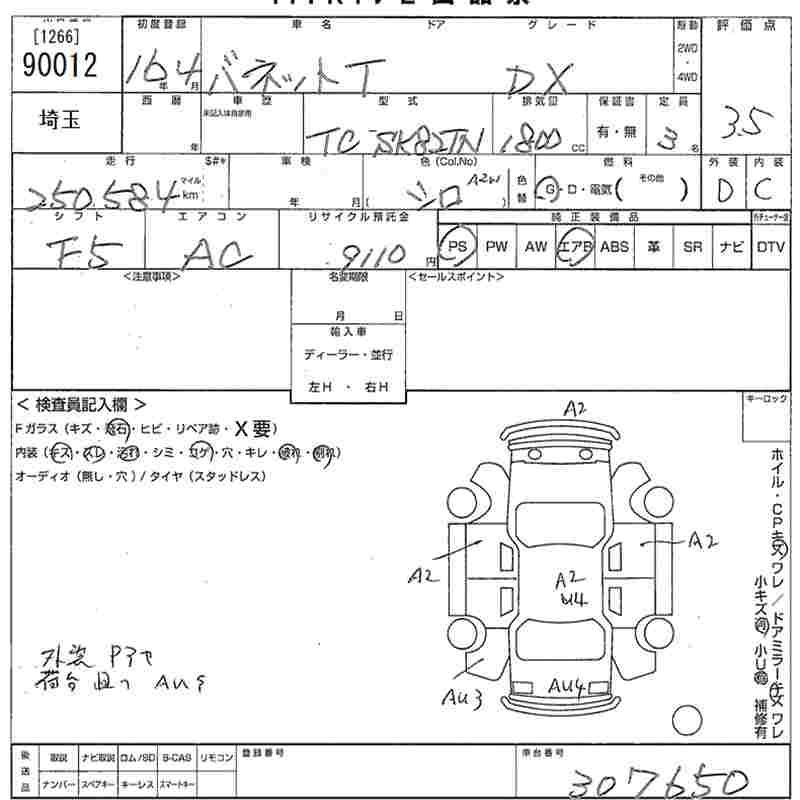 [1266]
90012
初度登録 車名 ドア グレード 駆動 評価点
16年4月 バネットT DX 2WD・4WD 3.5
埼玉
西暦 年 車歴 未記入は自家用 型式 排気量 保証書 定員
TC-SK82TN 1800cc 有・無 3名
走行 S#* 車検 色(Col.No) 燃料 外装 内装
250,584 マイル km 年 月 ( シロ A2W ) 色替 G・D・電気( その他 ) D C
シフト エアコン リサイクル預託金 純正装備品
F5 AC 9110円 PS PW AW エアB ABS 革 SR ナビ DTV
<注意事項> 名変期限 <セールスポイント>
月 日
輸入車
ディーラー・並行
左H・右H
<検査員記入欄> キーロック
Fガラス(キズ・飛石・ヒビ・リペア跡・X要)
内装(キズ・スレ・汚れ・シミ・コゲ・穴・キレ・破れ・剥れ)
オーディオ(無し・穴)/タイヤ(スタッドレス)
A2
A2
A2
A2
U4
AU3
AU4
ホイル・CPキズワレ/ドアミラーキズワレ
小キズ 小U 補修有
荷台 AU
後送品 取説 ナビ取説 ロム/SD B-CAS リモコン 登録番号 車台番号
ナンバー スペアキー キーレス スマートキー 307650